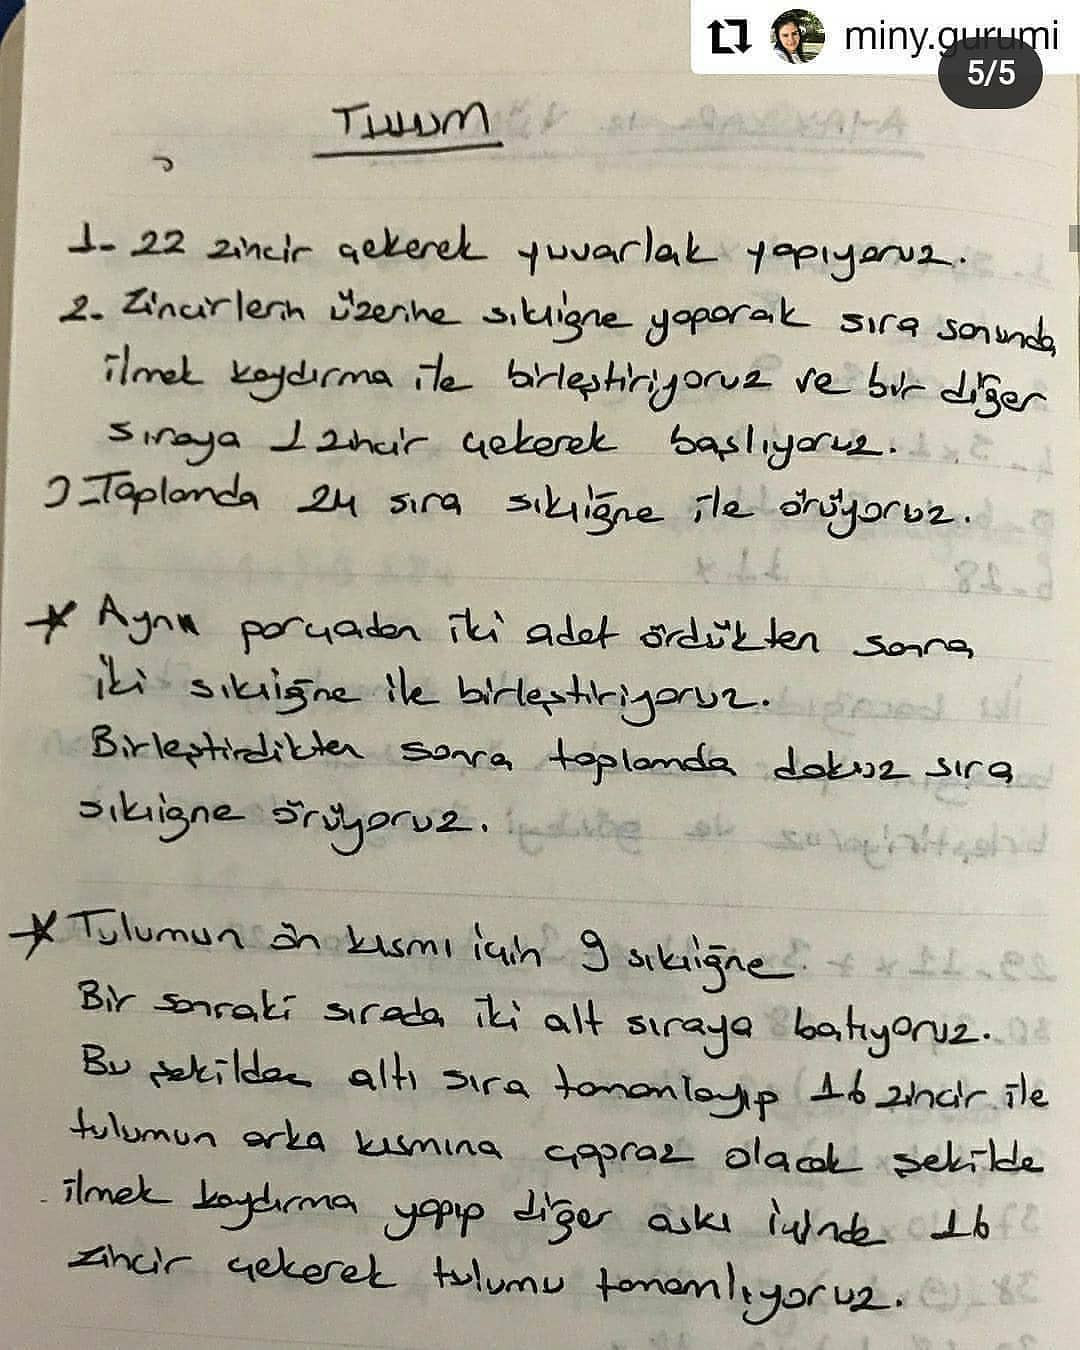 miny.gurumi
5/5
TULUM
1- 22 zincir çekerek yuvarlak yapıyoruz.
2. Zincirlerin üzerine sıkıiğne yaparak sıra sonunda
ilmek kaydırma ile birleştiriyoruz ve bir diğer
sıraya 1 zincir çekerek başlıyoruz.
3-Toplamda 24 sıra sıkıiğne ile örüyoruz.
* Aynı parçadan iki adet ördükten sonra
iki sıkıiğne ile birleştiriyoruz.
Birleştirdikten sonra toplamda dokuz sıra
sıkıiğne örüyoruz.
* Tulumun ön kısmı için 9 sıkıiğne.
Bir sonraki sırada iki alt sıraya batıyoruz.
Bu şekilde altı sıra tamamlayıp 16 zincir ile
tulumun arka kısmına çapraz olacak şekilde
ilmek kaydırma yapıp diğer askı içinde 16
zincir çekerek tulumu tamamlıyoruz.